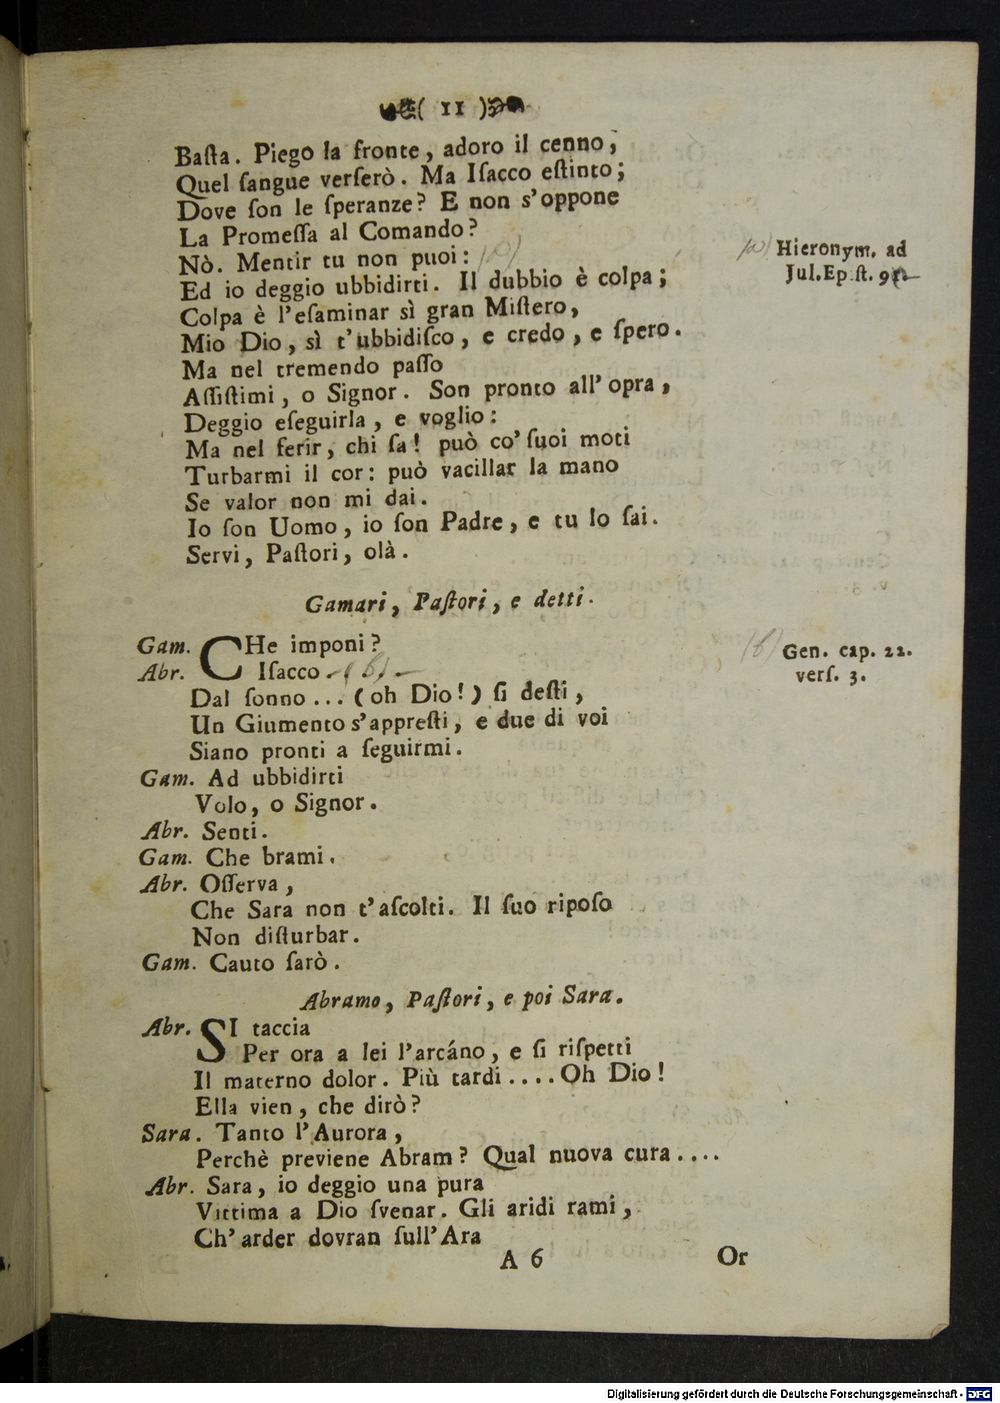 ( 11 )
Baſta. Piego la fronte, adoro il cenno;
Quel ſangue verſerò. Ma Iſacco eſtinto;
Dove ſon le ſperanze? E non s'oppone
La Promeſſa al Comando?
Nò. Mentir tu non puoi: (a)
Hieronym. ad
Jul. Epſt. 92
Ed io deggio ubbidirti. Il dubbio è colpa;
Colpa è l'eſaminar sì gran Miſtero,
Mio Dio, sì t'ubbidiſco, e credo, e ſpero.
Ma nel tremendo paſſo
Aſſiſtimi, o Signor. Son pronto all' opra,
Deggio eſeguirla, e voglio:
Ma nel ferir, chi ſa! può co' ſuoi moti
Turbarmi il cor: può vacillar la mano
Se valor non mi dai.
Io ſon Uomo, io ſon Padre, e tu lo ſai.
Servi, Paſtori, olà.
Gamari, Paſtori, e detti.
Gam. CHe imponi?
Abr. Iſacco (b)
(b) Gen. cap. 22.
verſ. 3.
Dal ſonno... (oh Dio!) ſi deſti,
Un Giumento s'appreſti, e due di voi
Siano pronti a ſeguirmi.
Gam. Ad ubbidirti
Volo, o Signor.
Abr. Senti.
Gam. Che brami.
Abr. Oſſerva,
Che Sara non t'aſcolti. Il ſuo ripoſo
Non diſturbar.
Gam. Cauto ſarò.
Abramo, Paſtori, e poi Sara.
Abr. SI taccia
Per ora a lei l'arcáno, e ſi riſpetti
Il materno dolor. Più tardi.... Oh Dio!
Ella vien, che dirò?
Sara. Tanto l'Aurora,
Perchè previene Abram? Qual nuova cura....
Abr. Sara, io deggio una pura
Vittima a Dio ſvenar. Gli aridi rami,
Ch'arder dovran ſull'Ara
A 6 Or
Digitalisierung gefördert durch die Deutsche Forschungsgemeinschaft - DFG